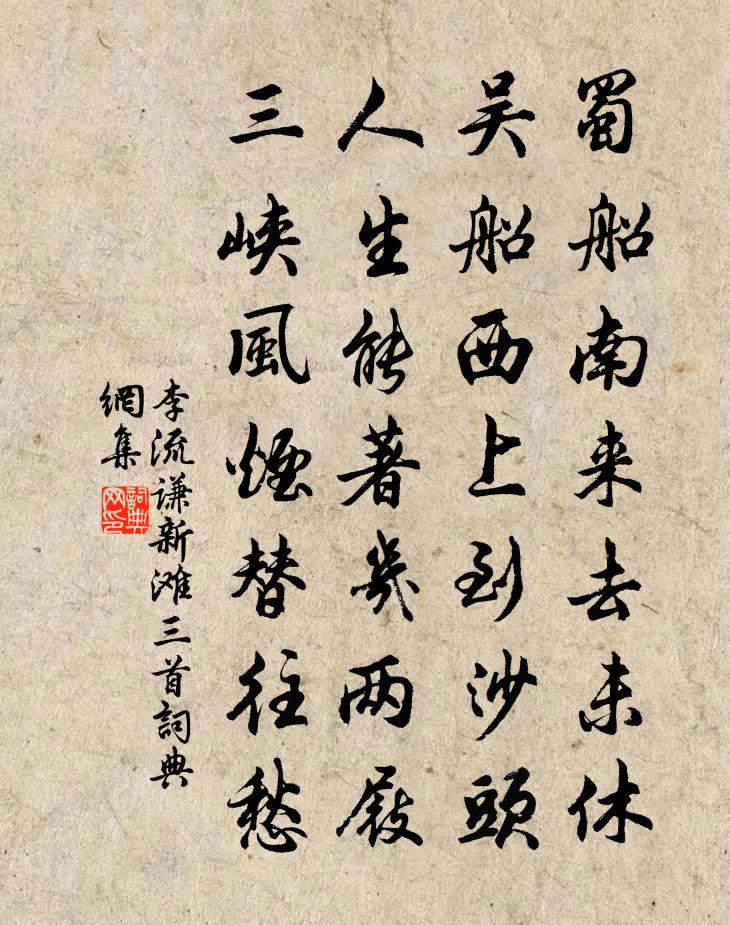 蜀船南来去未休
吴船西上到沙頭
人生能著幾两屐
三峡風煙替往愁
李流谦新滩三首詞典
網集
詞典
网印